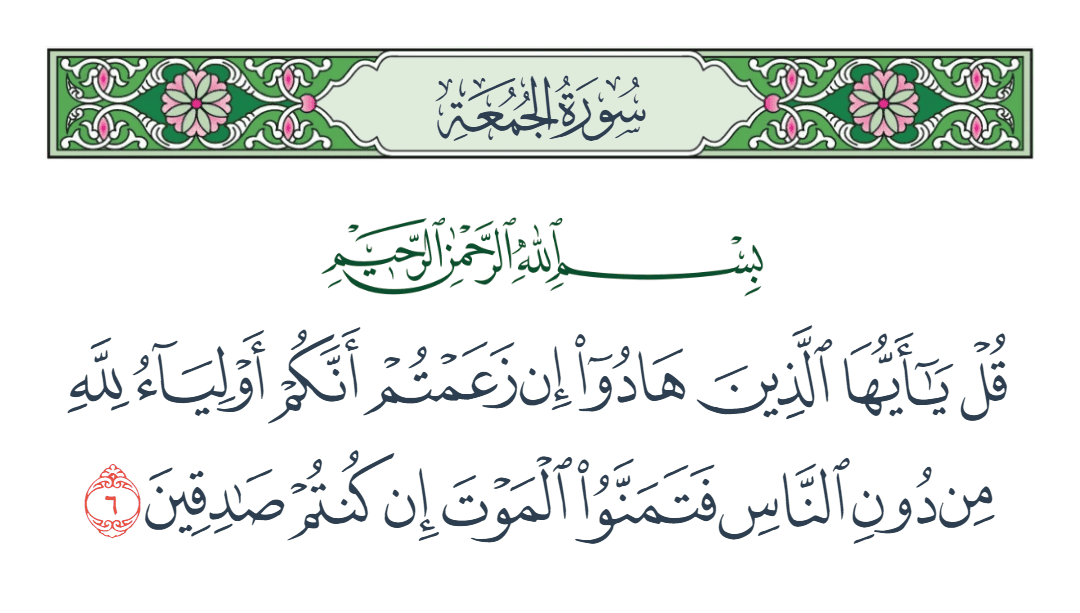 سُورَةُ الْجُمُعَةِ
بِسْمِ ٱللَّهِ ٱلرَّحْمَٰنِ ٱلرَّحِيمِ
قُلْ يَٰٓأَيُّهَا ٱلَّذِينَ هَادُوٓا۟ إِن زَعَمْتُمْ أَنَّكُمْ أَوْلِيَآءُ لِلَّهِ
مِن دُونِ ٱلنَّاسِ فَتَمَنَّوُا۟ ٱلْمَوْتَ إِن كُنتُمْ صَٰدِقِينَ ٦